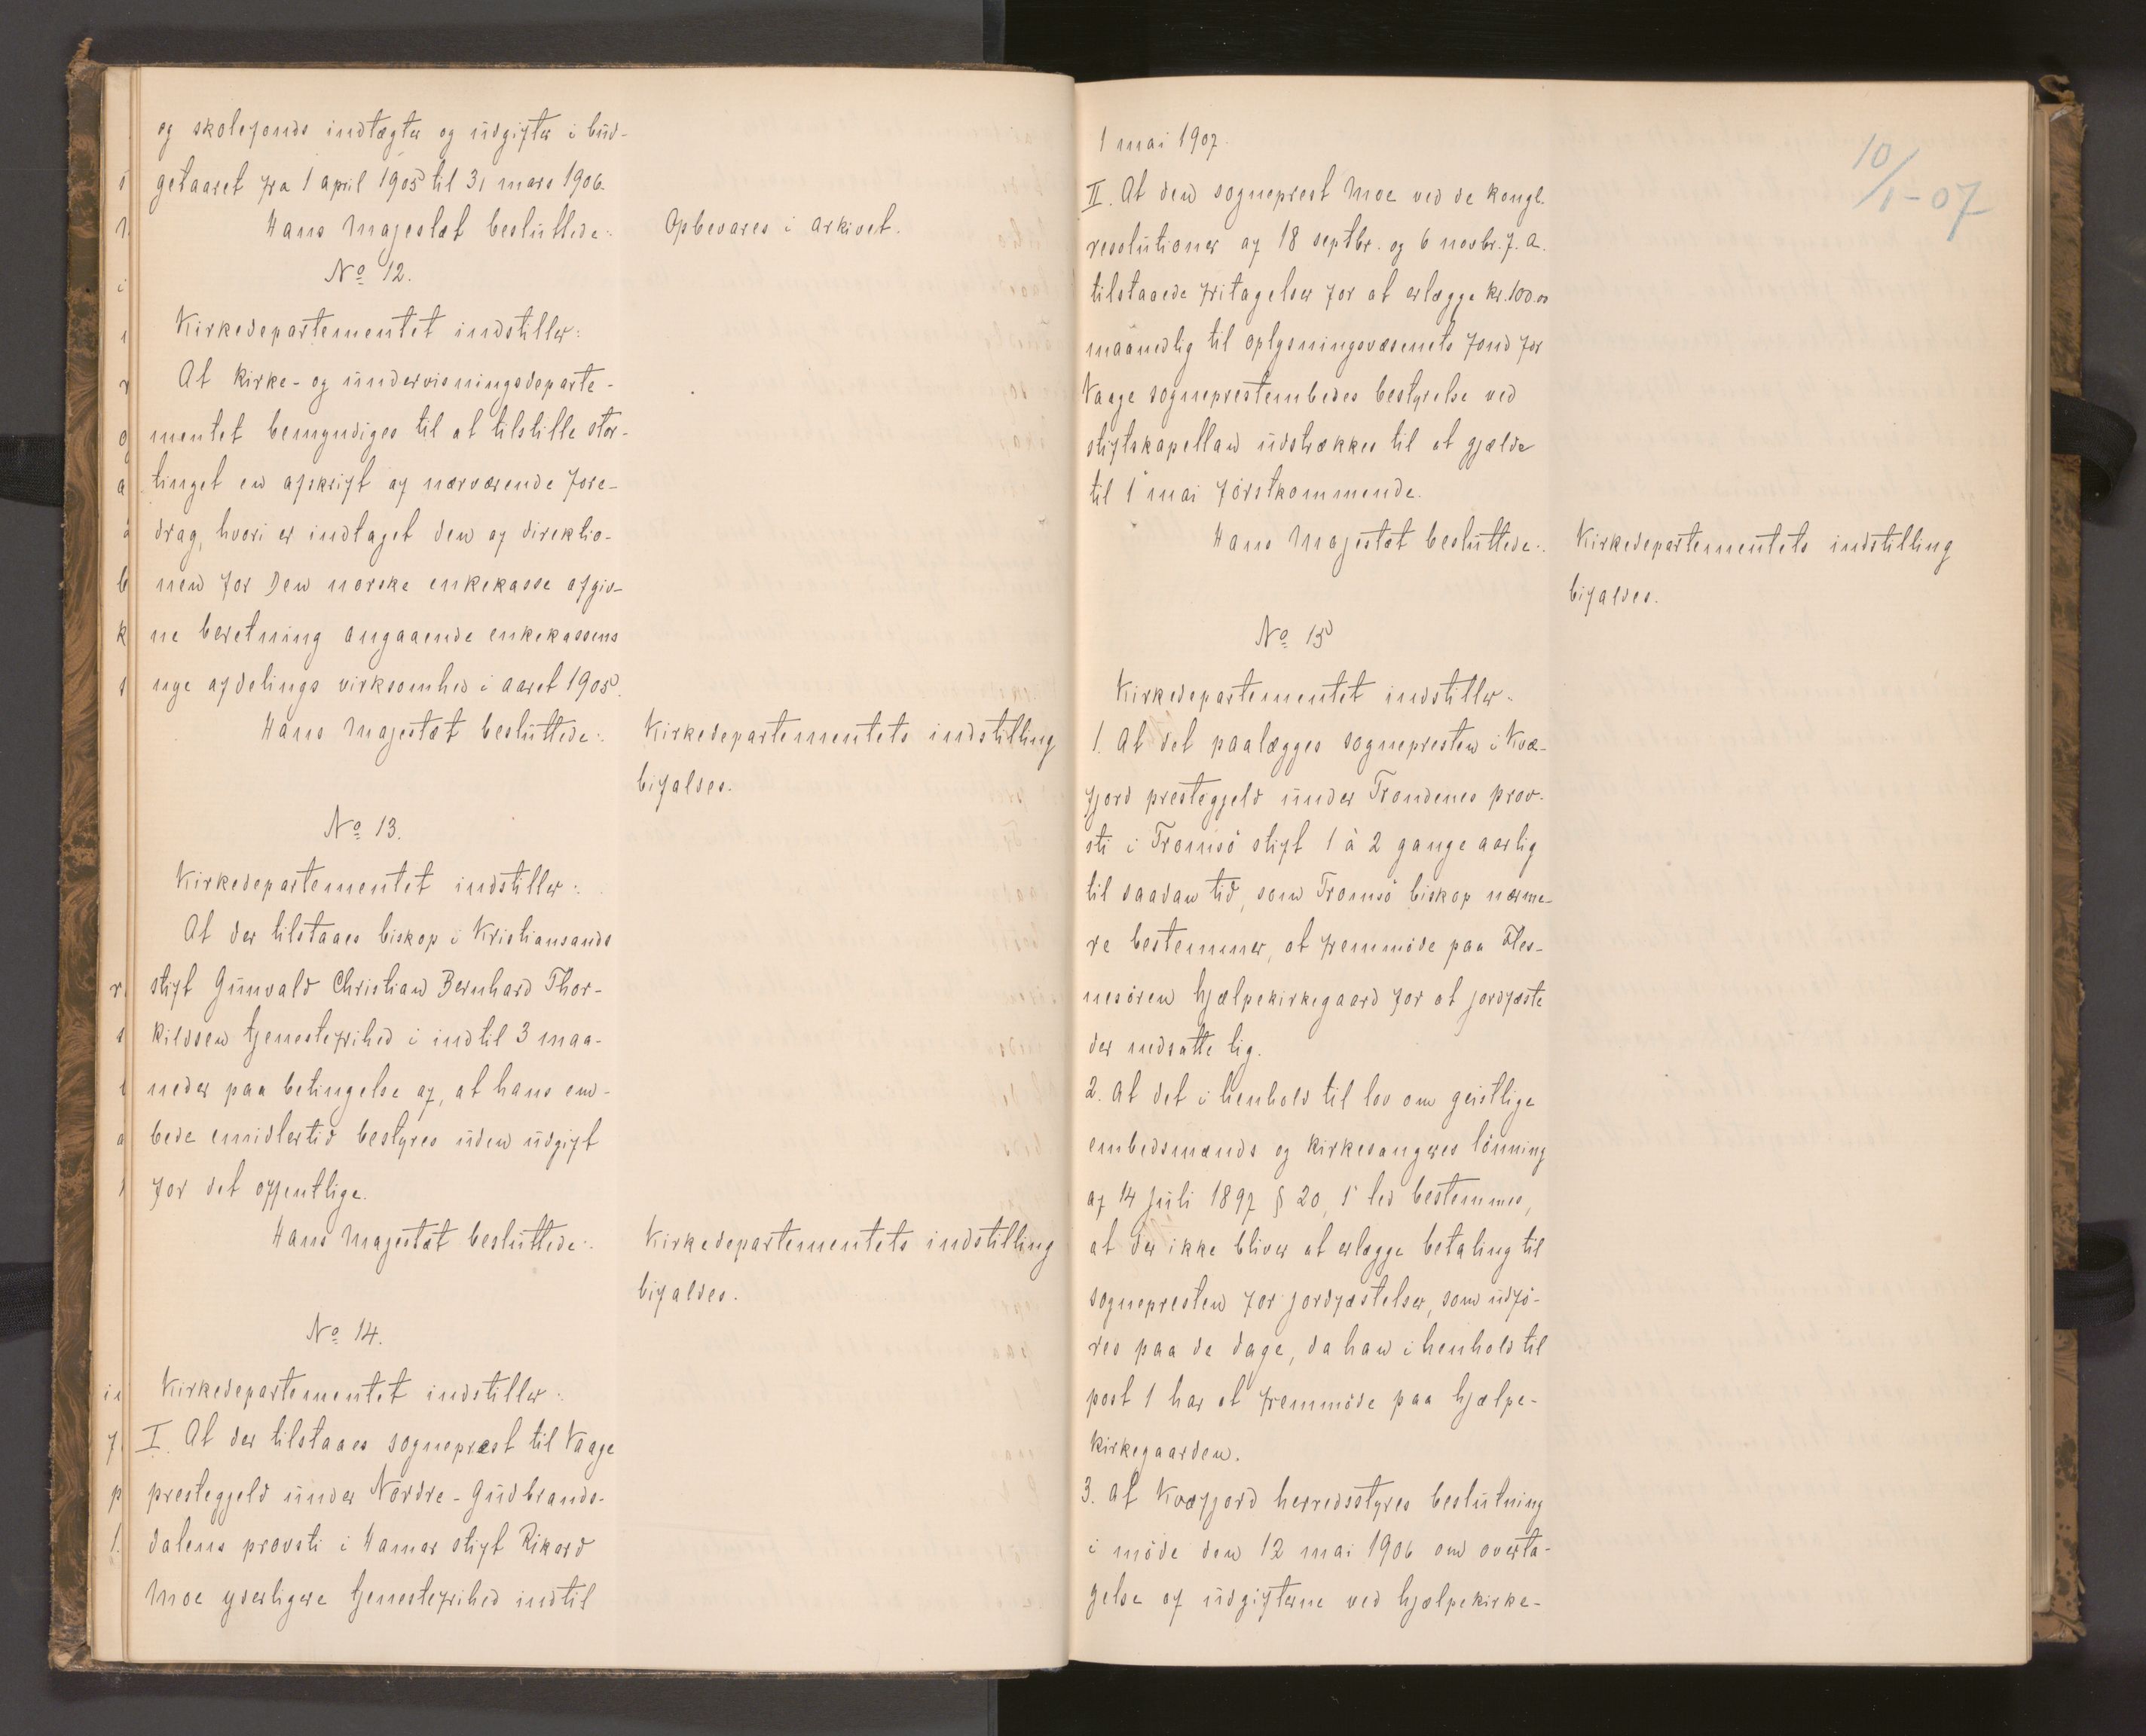 og skolefonds indtægter og udgifter i bud-
getaaret fra 1 april 1905 til 31 mars 1906.
Hans Majestæt besluttede: Opbevares i arkivet.
No 12.
Kirkedepartementet indstiller:
At Kirke- og undervisningsdeparte-
mentet bemyndiges til at tilstille stor-
tinget en afskrift af nærværende fore-
drag, hvori er indtaget den af direktio-
nen for Den norske enkekasse afgiv-
ne beretning angaaende enkekassens
nye afdelings virksomhed i aaret 1905.
Hans Majestæt besluttede: Kirkedepartementets indstilling
bifaldes.
No 13.
Kirkedepartementet indstiller:
At der tilstaaes biskop i Kristiansands
stift Gunvald Christian Bernhard Thor-
kildsen tjenestefrihed i indtil 3 maa-
neder paa betingelse af, at hans em-
bede emidlertid bestyres uden udgift
for det offentlige.
Hans Majestæt besluttede: Kirkedepartementets indstilling
bifaldes.
No 14.
Kirkedepartementet indstiller:
I. At der tilstaaes sogneprest til Vaage
prestegjeld under Nordre-Gudbrands-
dalens provsti i Hamar stift Rikard
Moe yderligere tjenestefrihed indtil
1 mai 1907.
10/1-07
II. At den sogneprest Moe ved de kongl.
resolutioner af 18 septbr. og 6 novbr. f. a.
tilstaaede fritagelser for at erlægge kr. 100.00
maanedlig til oplysningsvæsenets fond for
Vaage sogneprestembedes bestyrelse ved
stiftskapellan udstrækkes til at gjælde
til 1 mai førstkommende.
Hans Majestæt besluttede: Kirkedepartementets indstilling
bifaldes.
No 15
Kirkedepartementet indstiller:
1. At det paalægges sognepresten i Kvæ-
fjord prestegjeld under Trondenes prov-
sti i Tromsö stift 1 à 2 gange aarlig
til saadan tid, som Tromsö biskop nærme-
re bestemmer, at fremmöde paa Fles-
nesören hjælpekirkegaard for at jordfæste
der nedsatte lig.
2. At det i henhold til lov om geistlige
embedsmænds og kirkesangeres lönning
af 14 juli 1897 § 20, 5 led bestemmes,
at der ikke bliver at erlægge betaling til
sognepresten for jordfæstelser, som udfö-
res paa de dage, da han i henhold til
post 1 har at fremmöde paa hjælpe-
kirkegaarden.
3. At Kvæfjord herredsstyres beslutning
i möde den 12 mai 1906 om overta-
gelse af udgifterne ved hjælpekirke-